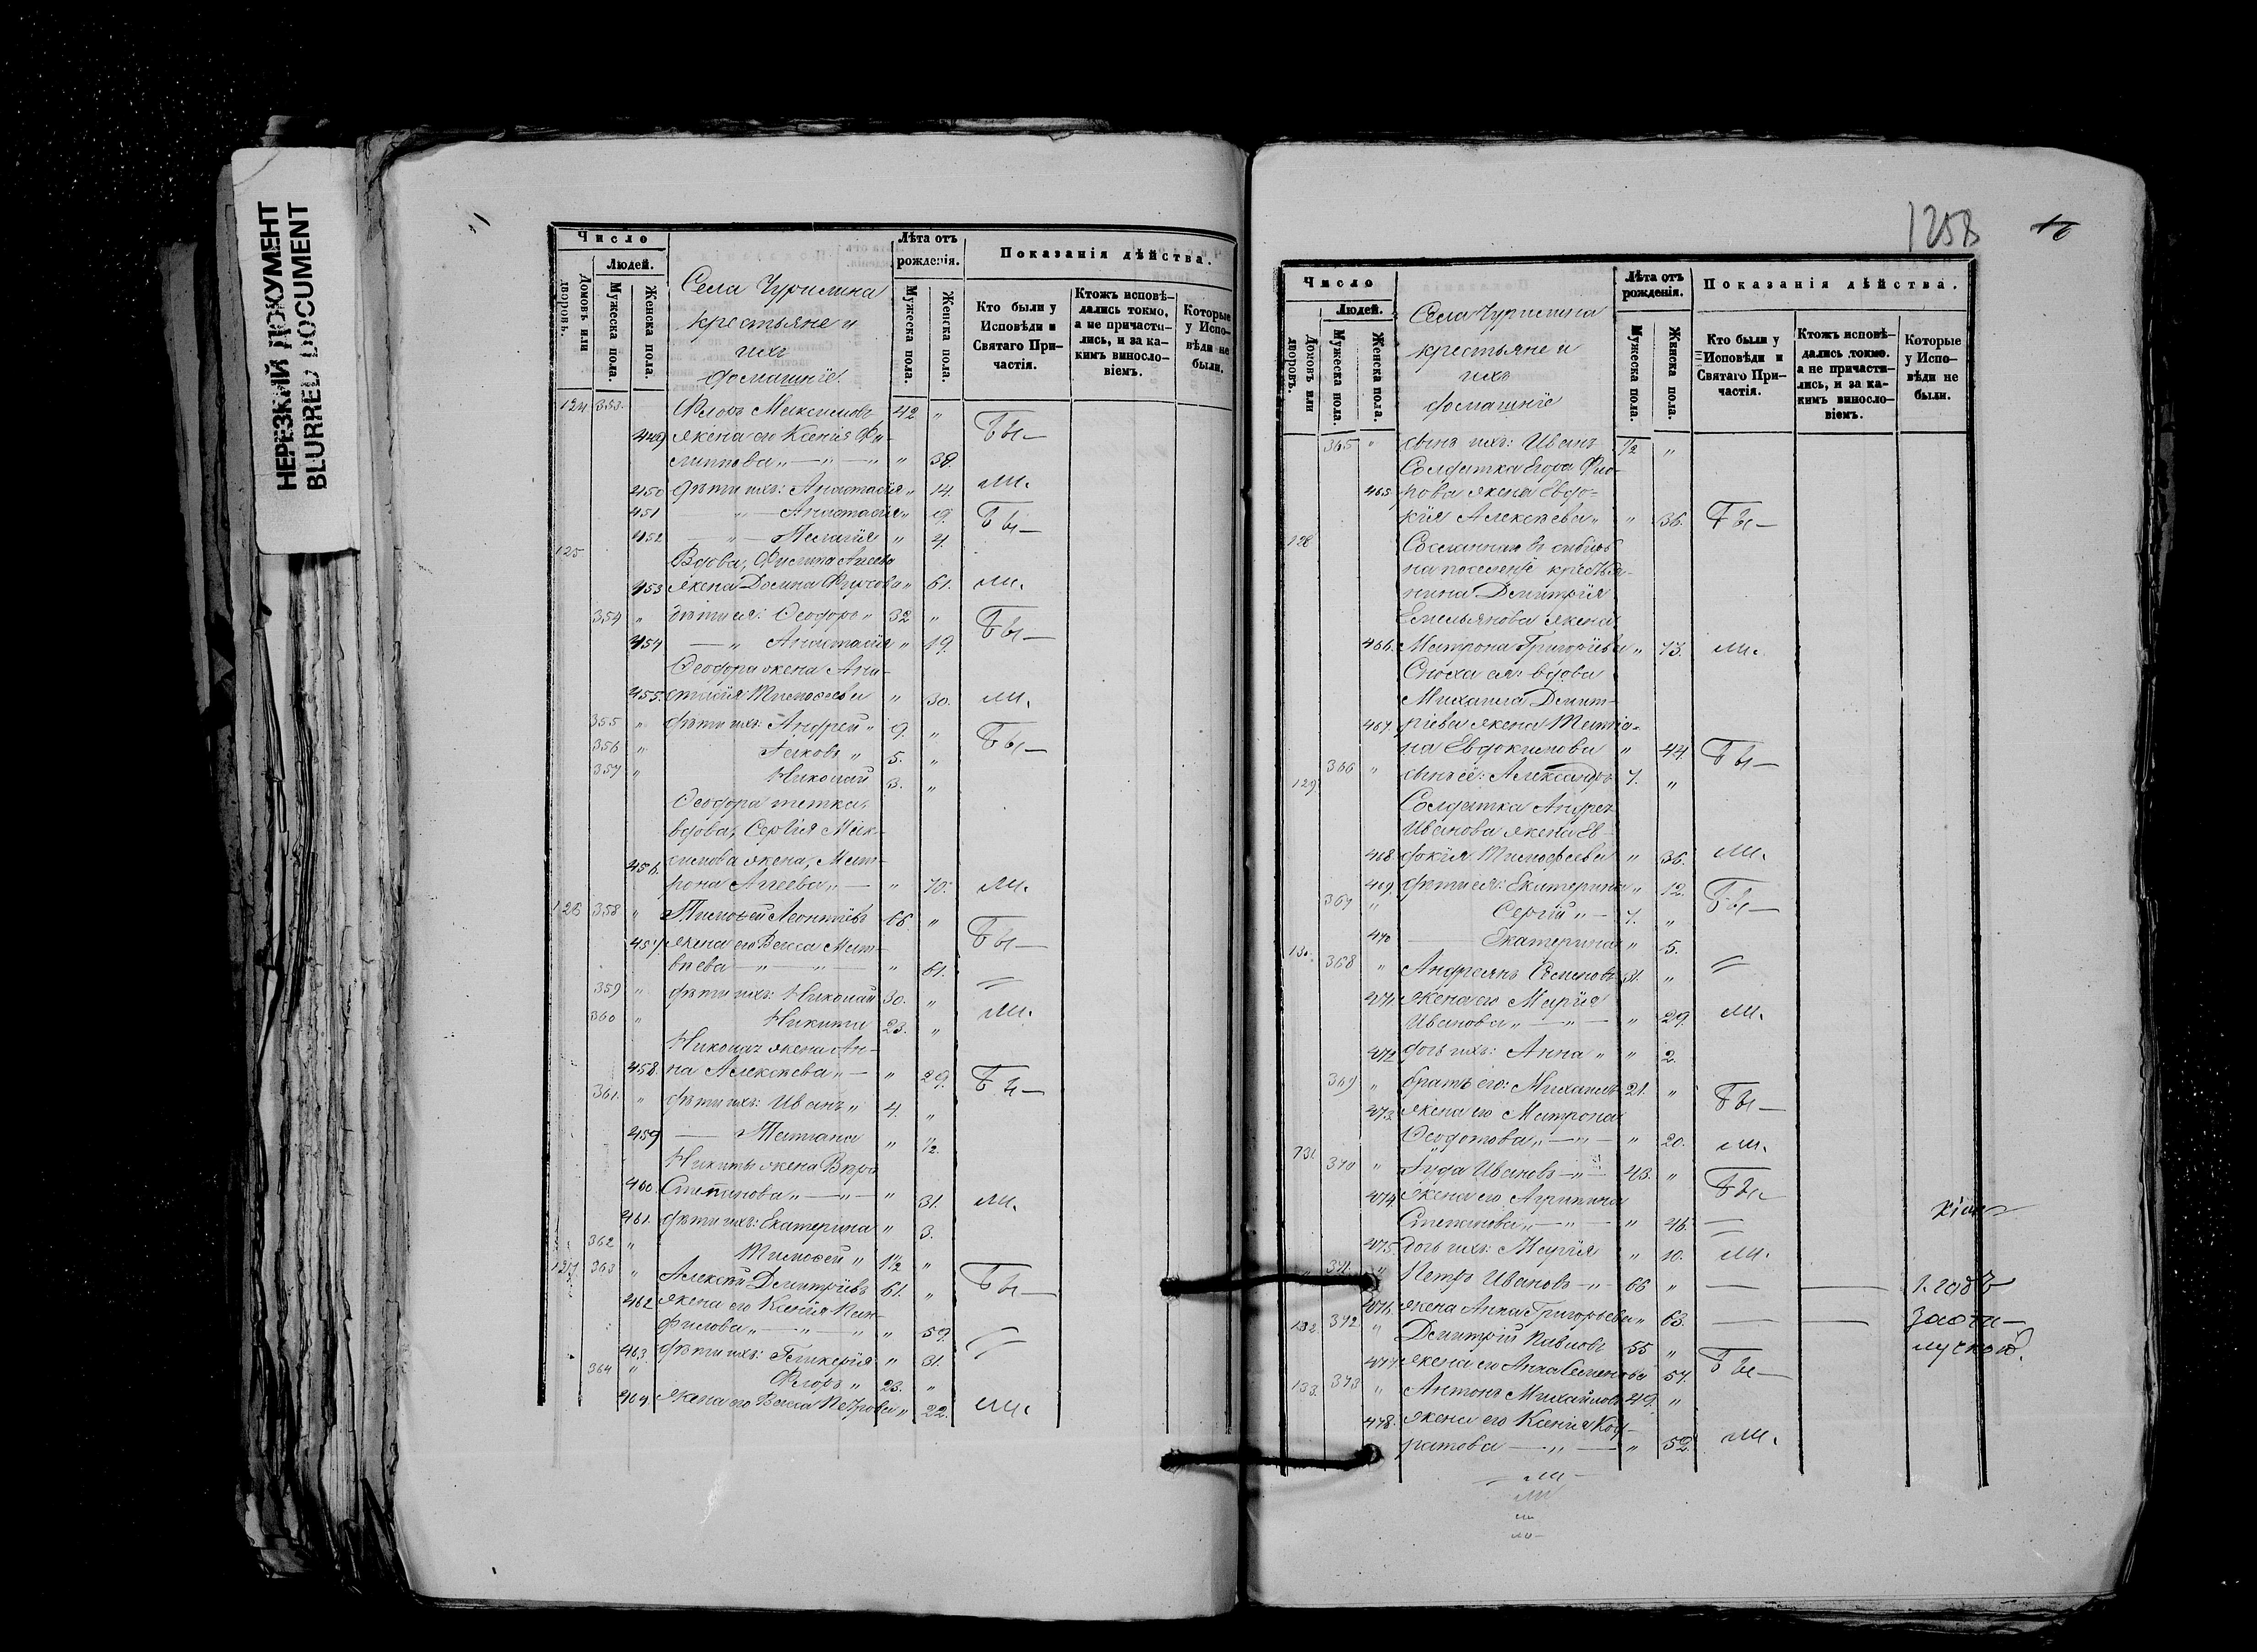 НЕРЕЗКИЙ ДОКУМЕНТ
BLURRED DOCUMENT
Число
Людей.
Домовъ или дворовъ.
Мужеска пола.
Женска пола.
Села Чурилина
крестьяне и
ихъ
домашніе
Лѣта отъ рожденія.
Мужеска пола.
Женска пола.
Показанія дѣйства.
Кто были у Исповѣди и Святаго Причастія.
Ктожъ исповѣдались токмо, а не причастились, и за какимъ винословіемъ.
Которые у Исповѣди не были.
124 353. Флоръ Максимовъ 42 "
449 жена его Ксенія Фи- Бы-
липпова " — " — " " 38.
450 дѣти ихъ: Анастасія " 14. ли.
451 — " — Анастасія " 9. Бы-
452 — " — Пелагія " 4.
125 Вдова, Филипа Агеева
453 жена Домна " 61. ли.
354 " дѣти ея: Ѳеодоръ " 32 " Бы-
454 — " Анастасія " 19.
Ѳеодора жена Ана-
455. стасія Тимоѳеева " 30. ли.
355 " дѣти ихъ: Андрей " 9. " Бы-
356 " Іаковъ " 5. "
357 " Николай 3. "
Ѳеодора тетка,
вдова, Сергія Мак-
456. симова жена, Мат-
рона Агеева " — " 70. ли.
126 358 " Тимоѳей Леонтіевъ 66. " Бы-
457. жена его Васса Мат-
вѣева — " — " — " 61.
359 " дѣти ихъ: Николай 30. "
360 " Никита 23. " ли.
Николая жена Ан-
458. на Алексѣева " — " 29. Бы-
361. " дѣти ихъ: Иванъ " 4. "
459 — Татіана " 1/2.
Никиты жена Вѣра
460. Степанова " — " — " 31. ли.
461. дѣти ихъ: Екатерина " 3.
362 " Тимоѳей " 1 1/2 "
127. 363 " Алексѣй Дмитріевъ 61. " Бы-
462 жена его Ксенія Пан-
филова " — " — " " 59.
463. дѣти ихъ: Гликерія " 31.
364 " Флоръ " 23. "
464. жена его Васса Петрова " 22. ли.
1258
Число
Людей.
Домовъ или дворовъ.
Мужеска пола.
Женска пола.
Села Чурилина
крестьяне и
ихъ
домашніе
Лѣта отъ рожденія.
Мужеска пола.
Женска пола.
Показанія дѣйства.
Кто были у Исповѣди и Святаго Причастія.
Ктожъ исповѣдались токмо, а не причастились, и за какимъ винословіемъ.
Которые у Исповѣди не были.
365 " сынъ ихъ: Иванъ 1/2 "
Солдатка Егора Фло-
465 рова жена Евдо-
кія Алексѣева " " 36. Бы-
128 въ сибирь
на поселеніе крестья-
нина Дмитрія
Емельянова жена
466. Матрона Григорьева " 73. ли.
Сноха ея: вдова
Михаила Дмит-
467. ріева жена Татіа-
на Евдокимова " 44. Бы-
366 " сынъ ея: Александръ 7. "
129 Солдатка Андрея
Иванова жена Ев-
468 докія Тимоѳеева " 36. ли.
469. дѣти ея: Екатерина " 12. Бы-
367 " Сергій " — 7. "
470 — Екатерина " 5.
130. 368 " Андреянъ Семеновъ 31. "
471. жена его Марія
Иванова " — " — " 29. ли.
472 дочь ихъ: Анна " " 2.
369 " братъ его: Михаилъ 21. " Бы-
473. жена его Матрона
Ѳеодотова " — " — " 20. ли.
131. 370 " Іуда Ивановъ — " — 43. " Бы-
474. жена его Агрипина
Степанова " — " — " 46. —
475 дочь ихъ: Марія " 10. ли.
371. " Петръ Ивановъ — " 66 " — — 1. годъ
476. жена Анна Григорьева " 63. — —
132. 372 " Дмитрій Павловъ 55 "
477 жена его Анна Семенова 57. Бы-
133. 373 " Антонъ Михайловъ 49. "
478. жена его Ксенія Код-
ратова — " — " 52. ли.